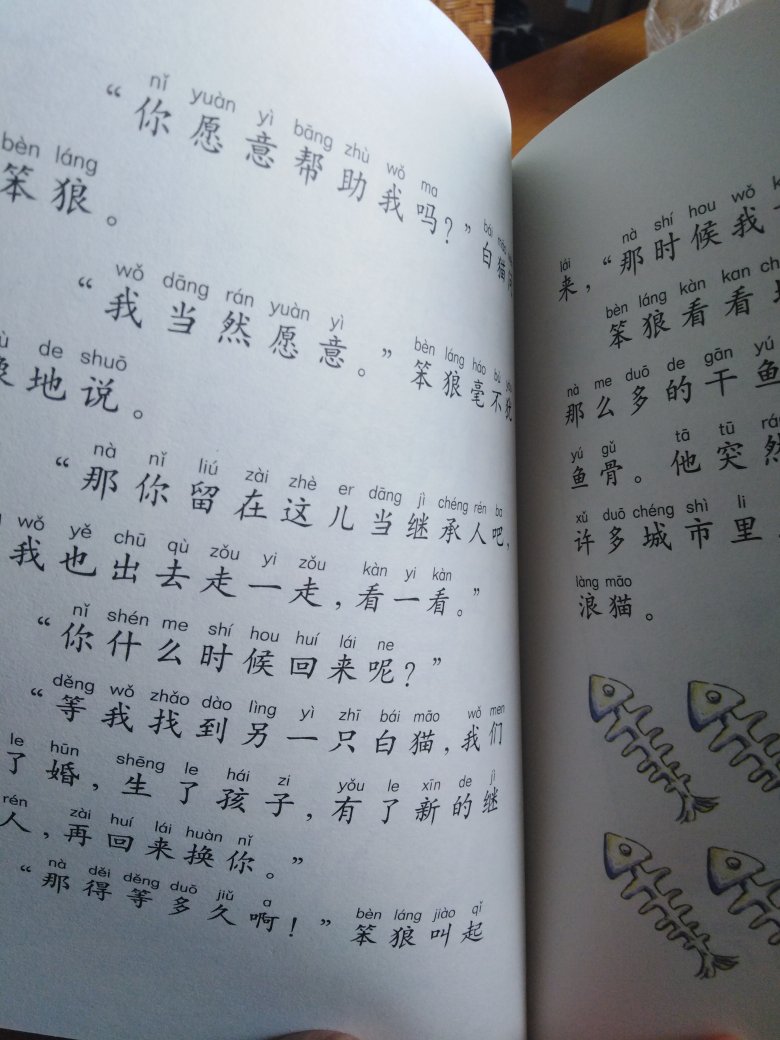 nǐ yuàn yì bāng zhù wǒ ma bái
“你愿意帮助我吗？”白猫
bèn láng
笨狼。
wǒ dāng rán yuàn yì bèn láng háo bù
“我当然愿意。”笨狼毫不犹
de shuō
地说。
nà nǐ liú zài zhè er dāng jì chéng rén ba
“那你留在这儿当继承人吧，
wǒ yě chū qù zǒu yi zǒu kàn yi kàn
我也出去走一走，看一看。”
nǐ shén me shí hou huí lái ne
“你什么时候回来呢？”
děng wǒ zhǎo dào lìng yì zhī bái māo wǒ men
“等我找到另一只白猫，我们
le hūn shēng le hái zi yǒu le xīn de jì
了婚，生了孩子，有了新的继
rén zài huí lái huàn nǐ
人，再回来换你。”
nà děi děng duō jiǔ a bèn láng jiào qǐ
“那得等多久啊！”笨狼叫起
lái nà shí hou wǒ
来，“那时候我
bèn láng kàn kan
笨狼看看
nà me duō de gān yú
那么多的干鱼
yú gǔ tā tū rán
鱼骨。他突然
xǔ duō chéng shì li
许多城市里
làng māo
浪猫。